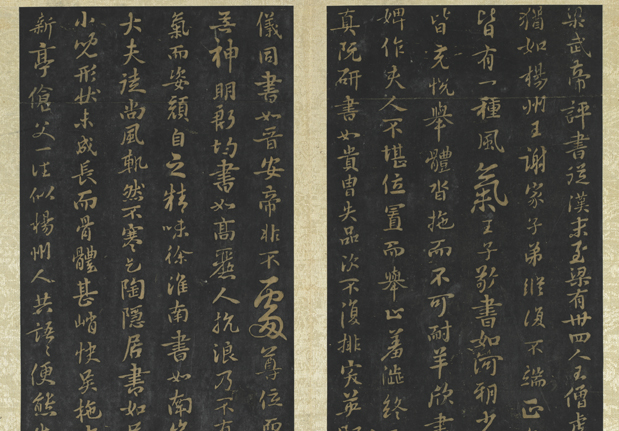 梁武帝評書從漢末至梁有卅四人王僧虔
猶如楊州王謝家子弟縱復不端正
皆有一種風氣王子敬書如河朔少
皆充悅舉體沓拖而不可耐羊欣書
婢作夫人不堪位置而舉止羞澁終
真阮研書如貴冑失品次不復排突英
儀同書如晉安帝非不處尊位而
無神明彭均書如高麗人抗浪乃不有
氣而姿頹自之精味徐淮南書如南
大夫徒尚風軌然不寒乞陶隱居書如
小兒形狀未成長而骨體甚峭快吳拖
新亭傖父一往似楊州人共語語便態